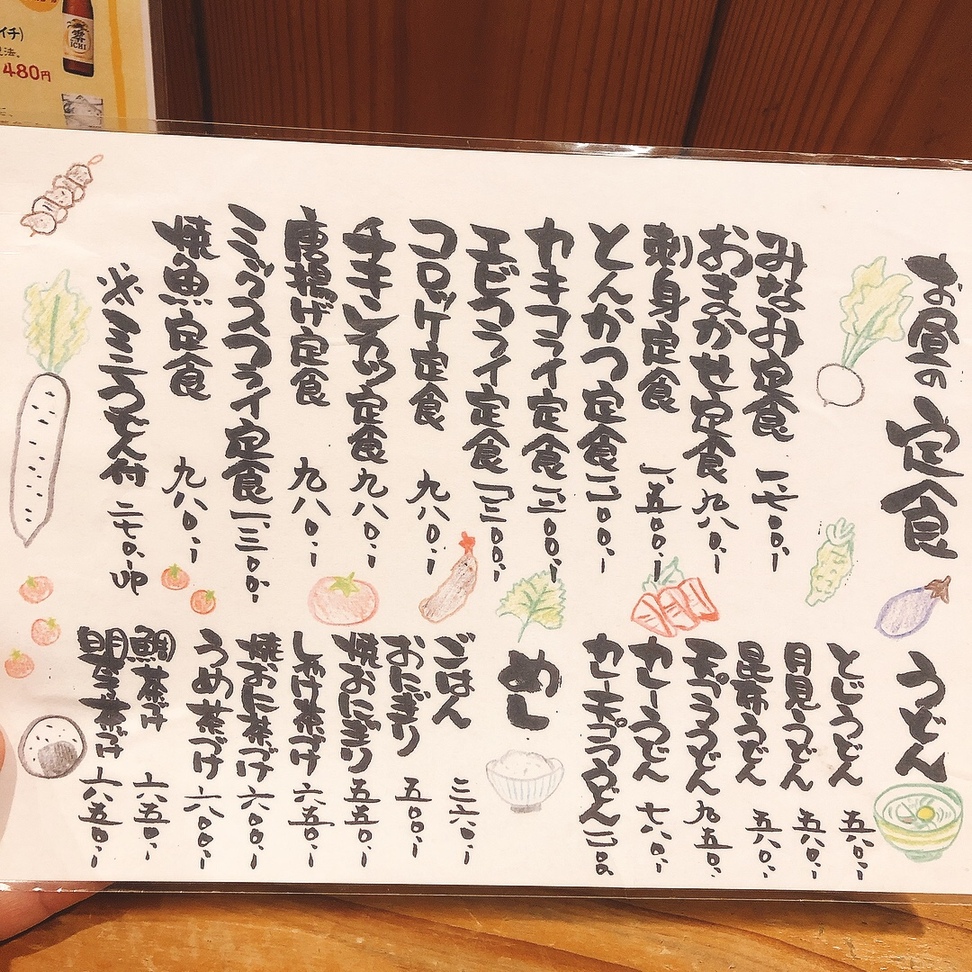 お昼の定食
みなみ定食 一、七〇〇、ー
おまかせ定食 九八〇、ー
刺身定食 一、五〇〇、ー
とんかつ定食 一、一〇〇、ー
カキフライ定食 一、一〇〇、ー
エビフライ定食 一、三〇〇、ー
コロッケ定食 九八〇、ー
チキンカツ定食 九八〇、ー
唐揚げ定食 九八〇、ー
ミックスフライ定食 一、三〇〇、ー
焼魚定食 九八〇、ー
※ミニうどん付 二七〇、UP
うどん
とじうどん 五八〇、ー
月見うどん 五八〇、ー
昆布うどん 五八〇、ー
天ぷらうどん 九五〇、ー
カレーうどん 七八〇、ー
カレー天ぷらうどん
めし
ごはん 二六〇、ー
おにぎり 五〇〇、ー
焼おにぎり 五五〇、ー
しゃけ茶づけ 六五〇、ー
焼おに茶づけ 六〇〇、ー
うめ茶づけ 六〇〇、ー
鯛茶づけ 六五〇、ー
明太茶づけ 六五〇、ー
480円
ICHI